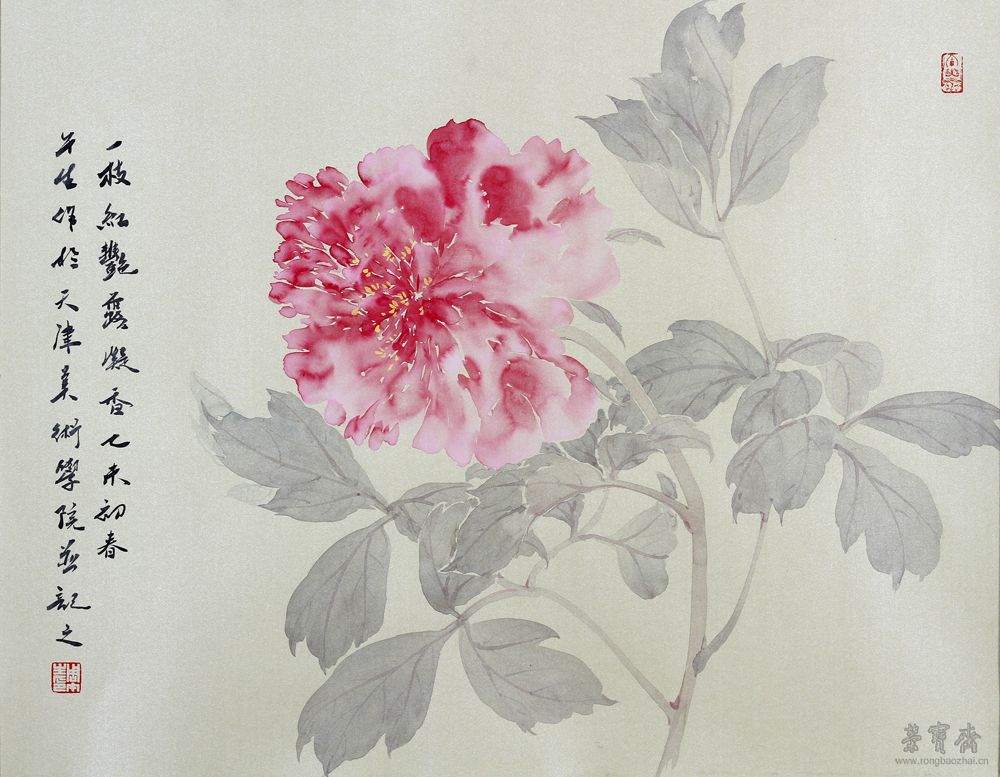 一枝紅艷露凝香乙未初春
生作於天津美術學院並記之
榮寳齋
www.rongbaozhai.cn